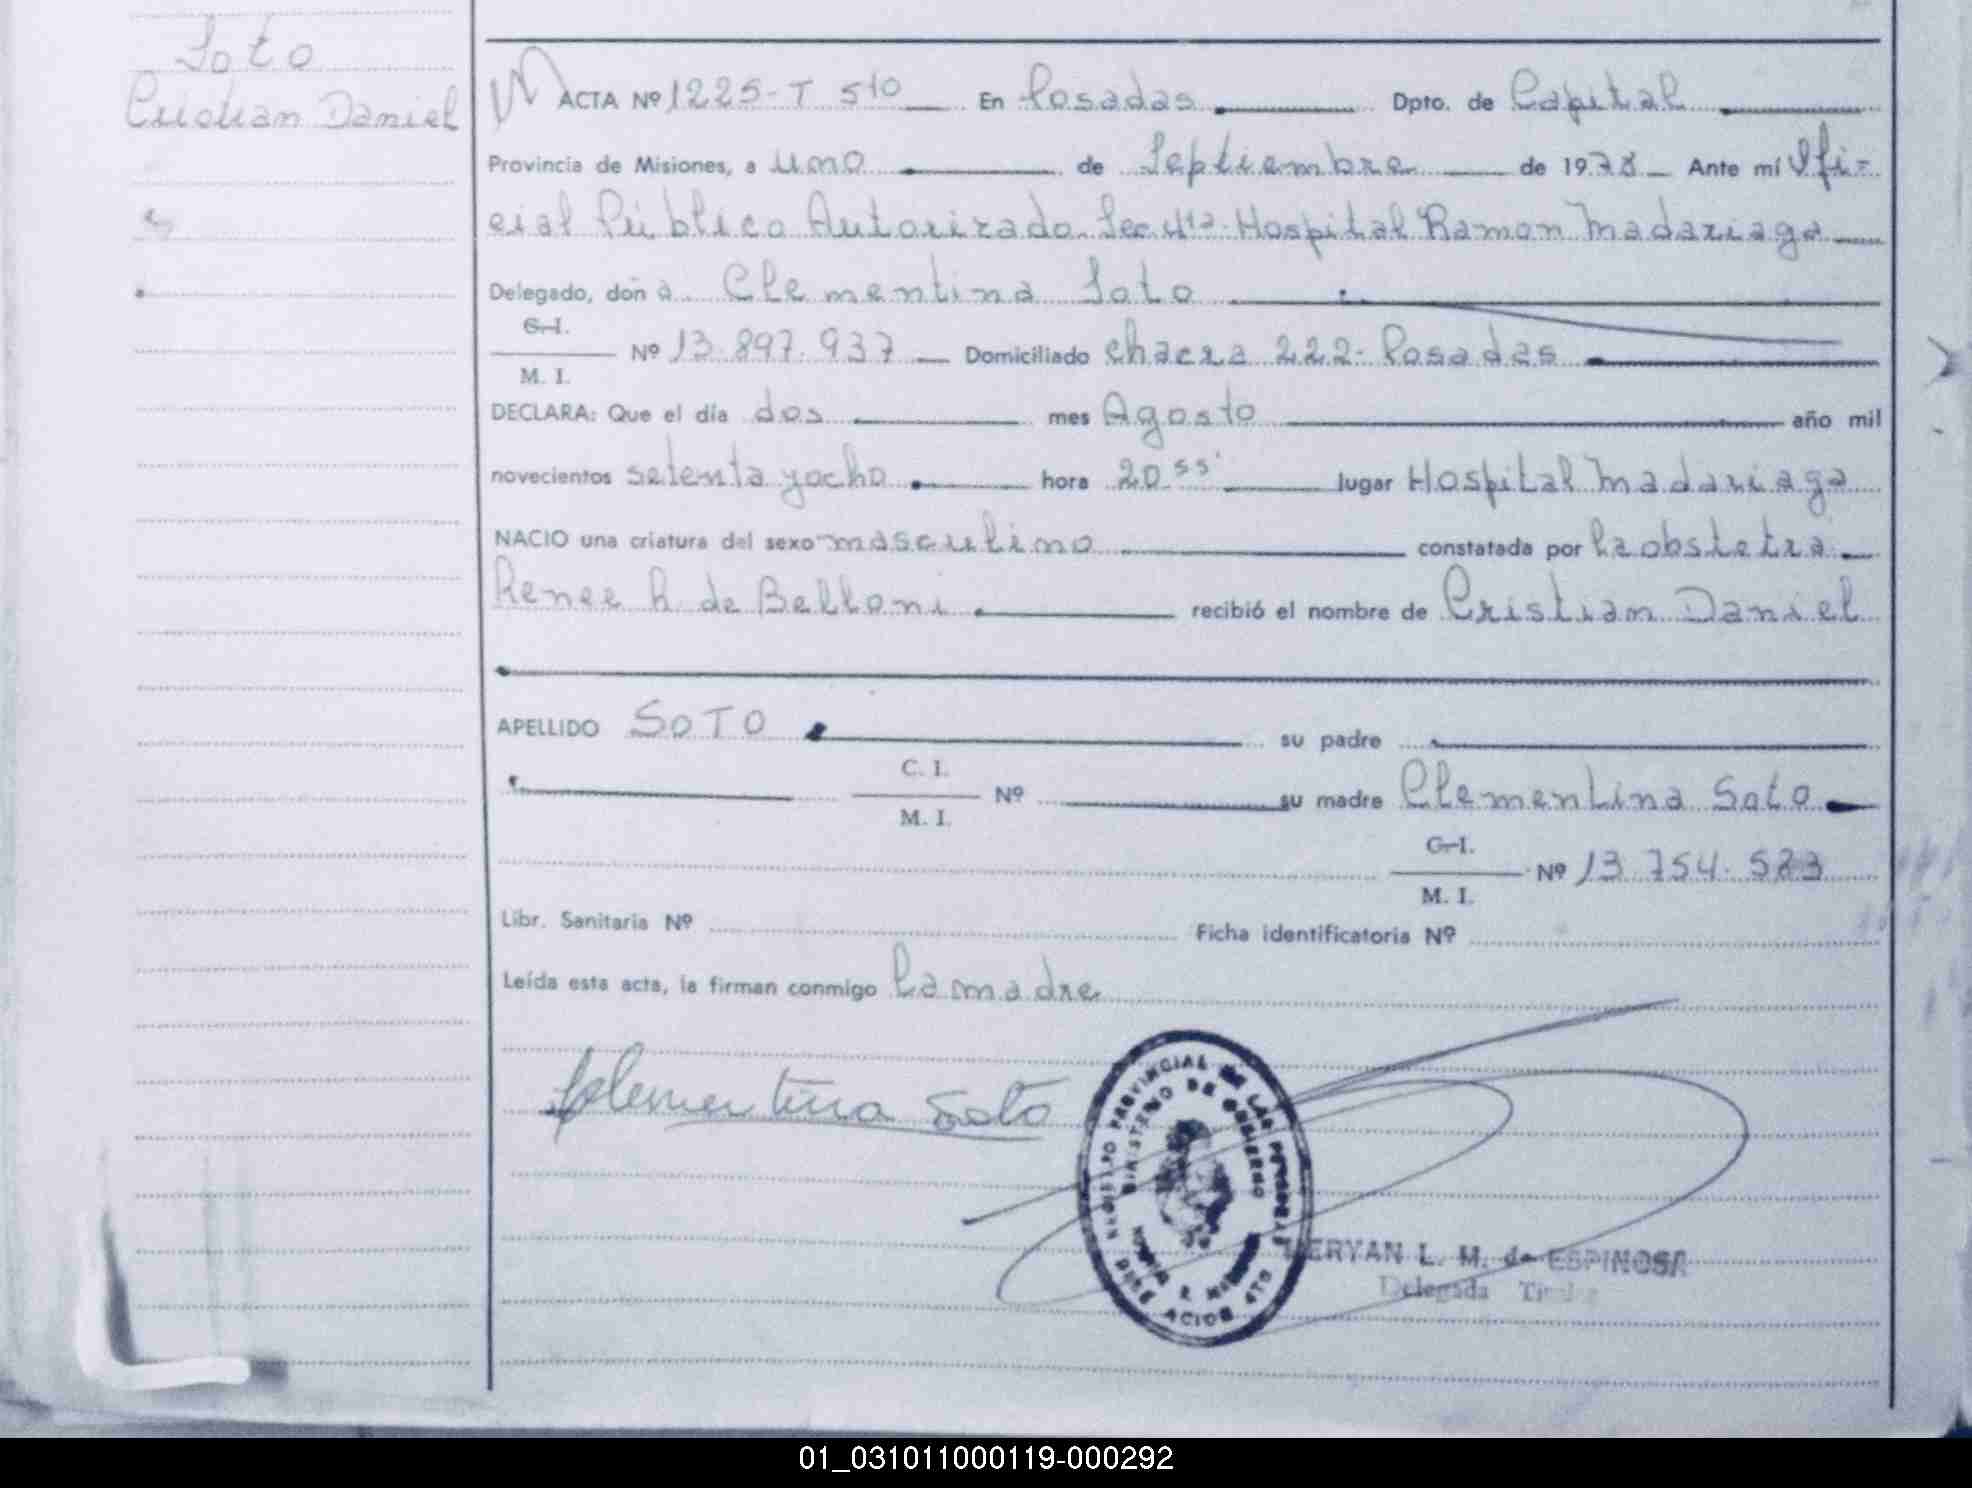 Soto
Cristian Daniel
ACTA Nº 1225-T 5to En Posadas Dpto. de Capital
Provincia de Misiones, a uno de Septiembre de 1978 Ante mí Ofi=
cial Público Autorizado Sec 4ta Hospital Ramon Madariaga
Delegado, don a Clementina Soto
C.I.
Nº 13.897.937 Domiciliado chacra 222- Posadas
M. I.
DECLARA: Que el día dos mes Agosto año mil
novecientos setenta yocho hora 20 55' lugar Hospital Madariaga
NACIO una criatura del sexo masculino constatada por la obstetra
Renee R. de Belloni recibió el nombre de Cristian Daniel
APELLIDO SOTO su padre
C. I.
Nº su madre Clementina Soto
M. I.
C.I.
Nº 13.754.523
M. I.
Libr. Sanitaria Nº Ficha identificatoria Nº
Leída esta acta, la firman conmigo la madre
Clementina Soto
REGISTRO PROVINCIAL DE LAS PERSONAS
MINISTERIO DE GOBIERNO
MERYAN L. M. de ESPINOSA
Delegada Titular
01_031011000119-000292